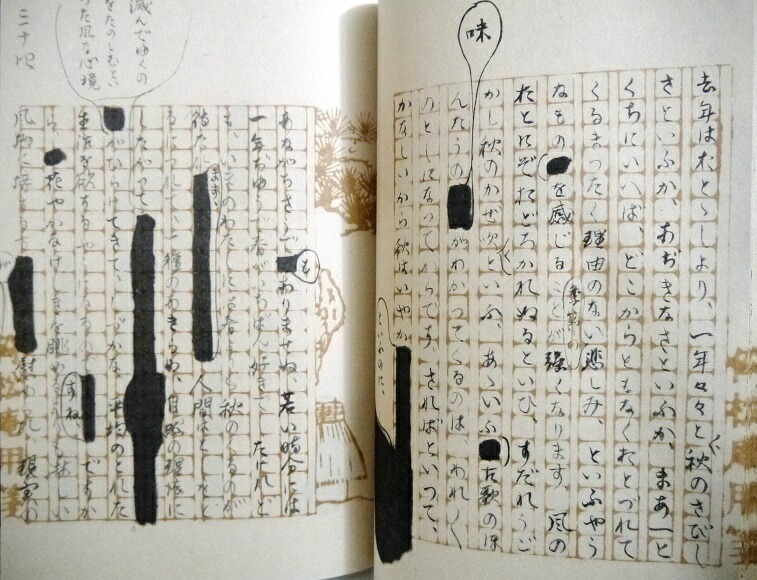 去年はおとゝしより、一年々々と秋のさびし
さといふか、あぢきなさといふか、まあ一と
くちにいへば、どこからともなくおとづれて
くるまつたく理由のない悲しみ、といふやう
なものを感じることが強くなります。風の
おとにぞおどろかれぬるといひ、すだれうご
かし秋のかぜ吹くといふ、あゝいふ古歌の味
味
んたうのがわかつてくるのは、われ〳〵
のとしになつてからです。さればといつて、
かなしいから秋はいやか
といふのに、
あながちさうでもありませぬ。若い時分には
一年ぢゆうで春がいちばん好きでしたけれど
も、いまのわたしには春よりも秋のくるのが
待たれ
ます。
人間はとしをと
るにつれて、一種のあきらめ、自然の理法に
したがつて
滅んでゆくの
をたのしむとい
つた風な心境
がひらけてきて、しづかな、平均のとれた
生活を欲するや
すね。
ですか
ら、花やかなけしきを眺めるよりも淋しい
風物に接する
が
慰められ、現実の